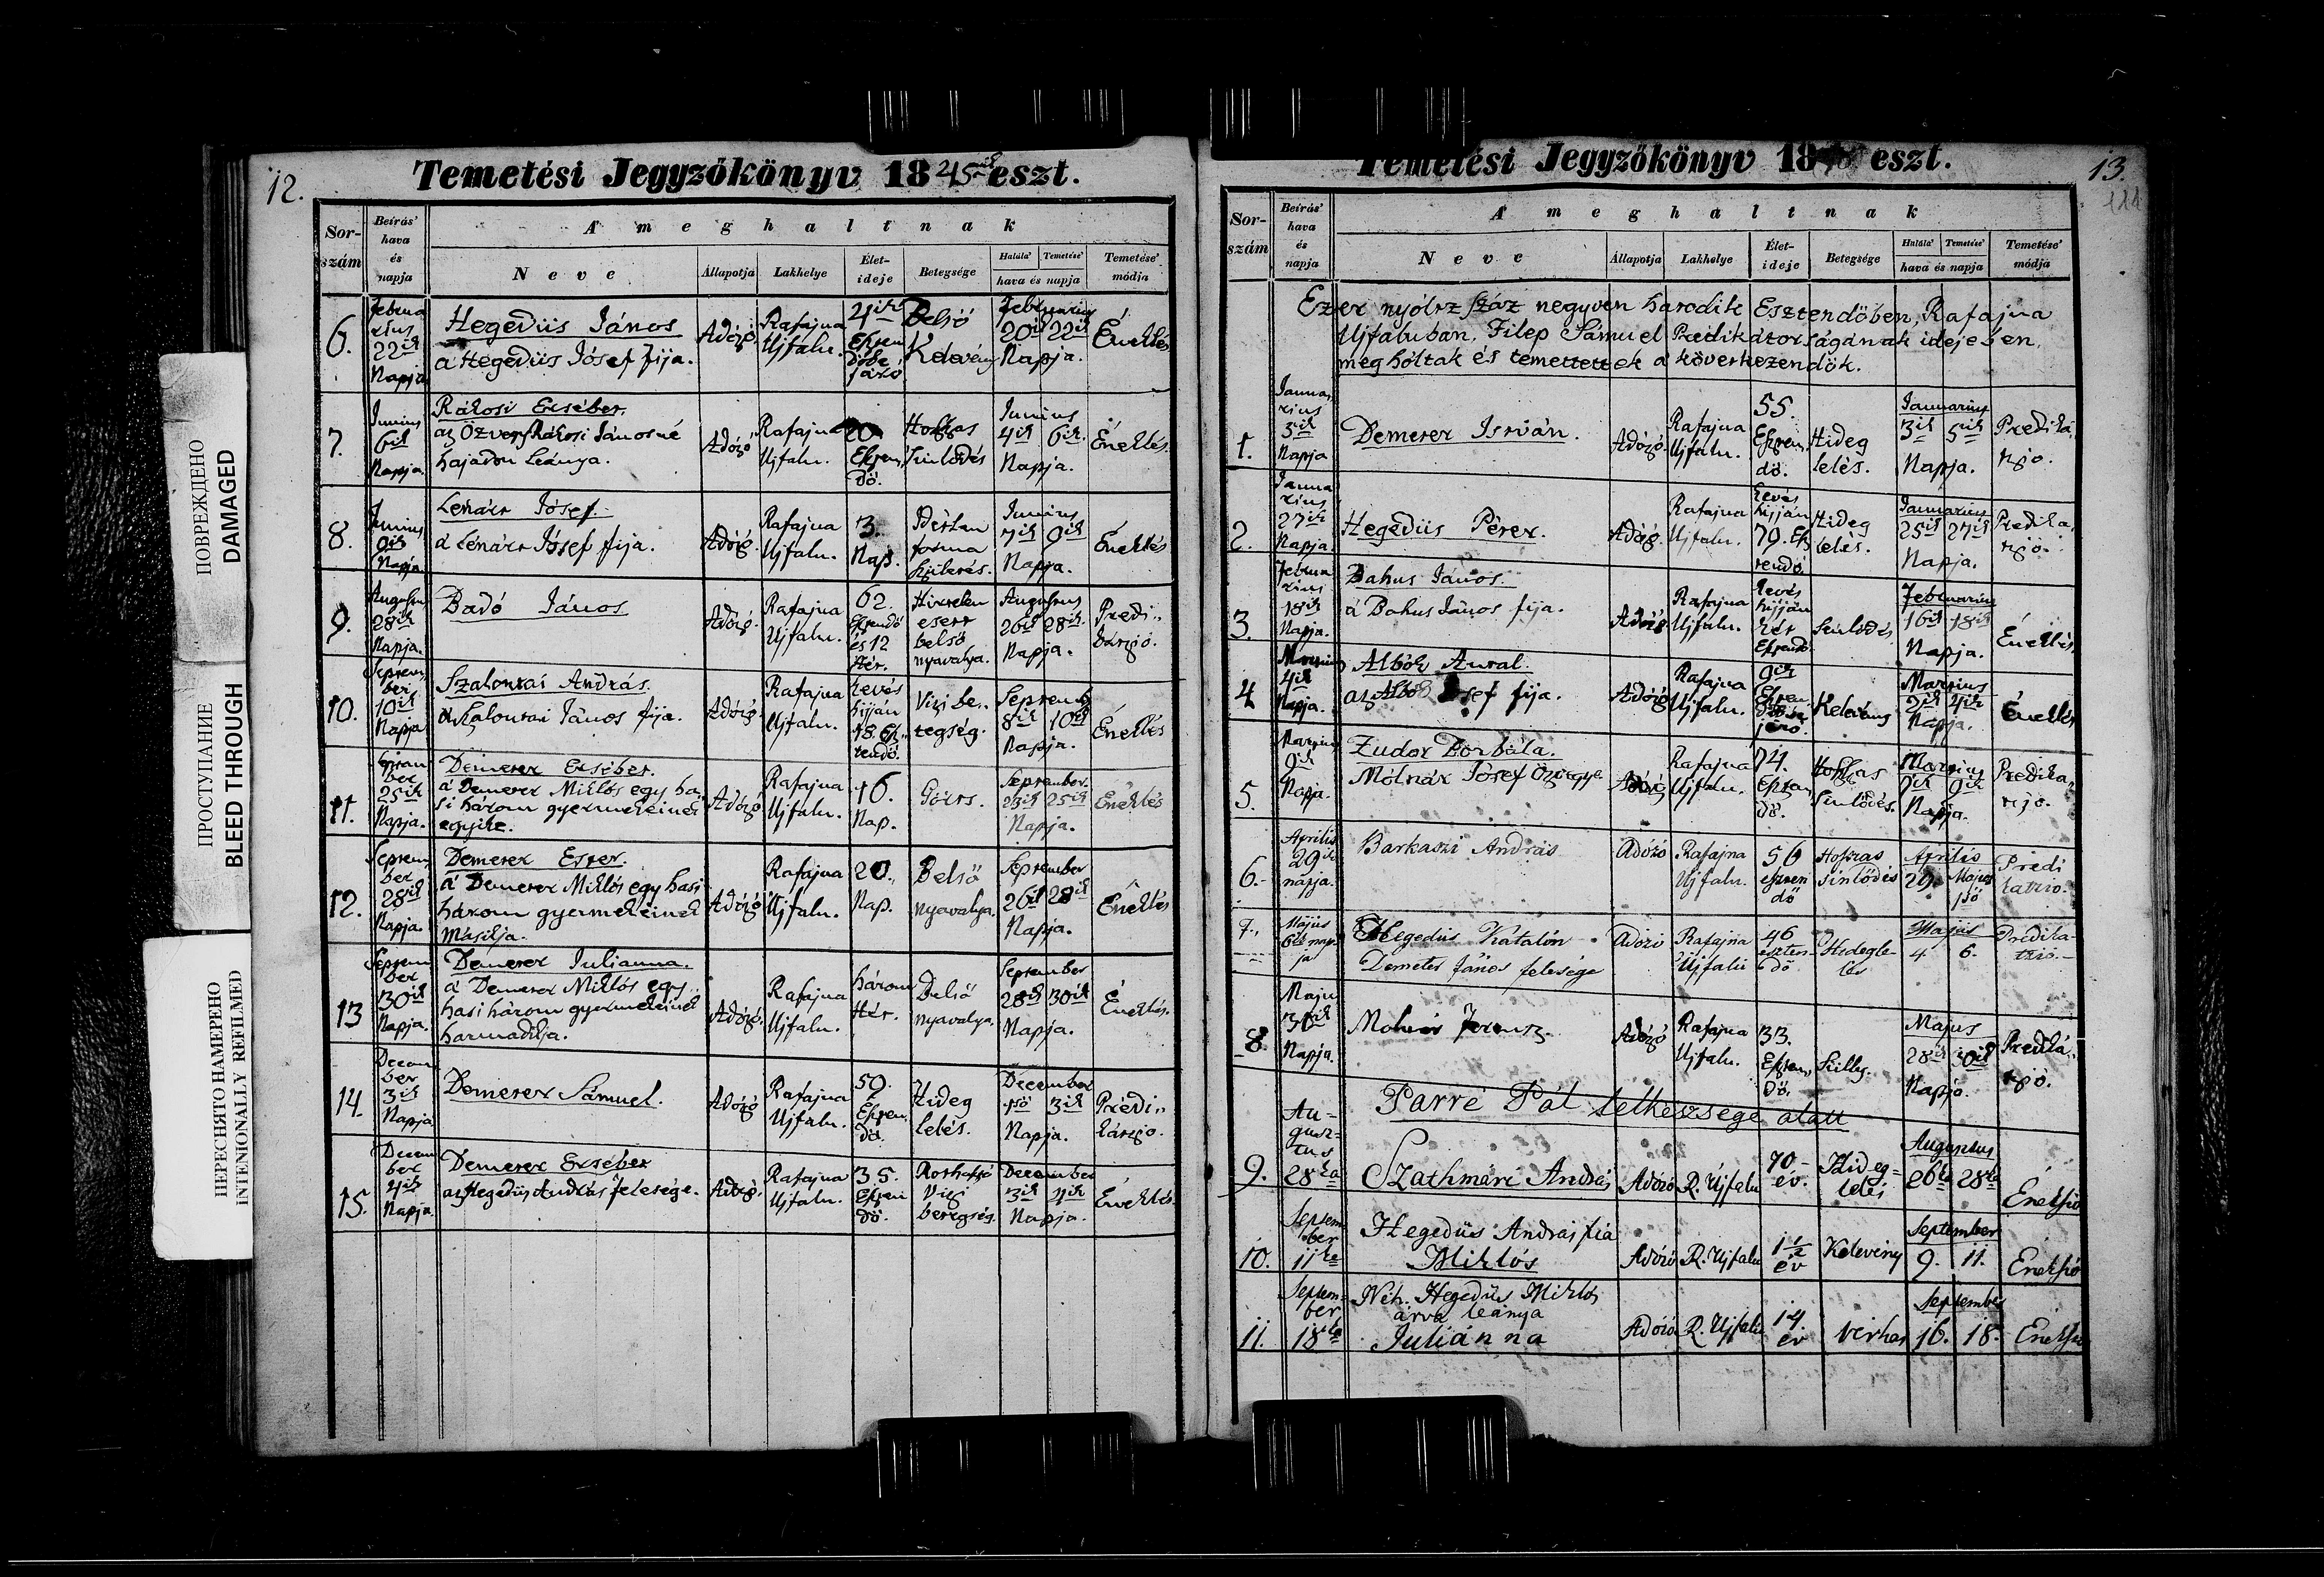 ПОВРЕЖДЕНО
DAMAGED
ПРОСТУПАНИЕ
BLEED THROUGH
ПЕРЕСНЯТО НАМЕРЕНО
INTENIONALLY REFILMED
12.
Temetési Jegyzőkönyv 1845 eszt.
Sor-szám
Beírás' hava és napja
A' meghaltnak
Neve
Állapotja
Lakhelye
Élet-ideje
Betegsége
Halála'
Temetése'
hava és napja
Temetése' módja
6. Februarius 22ik Napja Hegedüs János Adózó Rafajna Ujfalu. Belső Kelevény Februarius 20ik 22ik Napja. Éneklés
a Hegedüs Jósef fija.
7. Junius 6ik Napja. Rákosi Ersébet. Adózó Rafajna Ujfalu. 20 Esztendő. Hosszas Sinlődés Junius 4ik 6ik Napja. Éneklés.
hajadon Leánya.
8. Junius 9ik Napja Lénárt Jósef. Adózó. Rafajna Ujfalu. 3. Nap. Junius 7ik 9ik Napja. Éneklés
a Lénárt Jósef fija.
9. Augustus 28ik Napja. Badó János Adózó. Rafajna Ujfalu. 62. Esztendő és 12 Hét. Hirtelen esett belső nyavalya. Augustus 26ik 28ik Napja.
10. September 10ik Napja Szalontai András. Adózó. Rafajna Ujfalu. hevés hijján 18. Esztendő. Vizi betegség. September 8ik 10ik Napja. Éneklés
a Szalontai János fija.
11. September 25ik Napja. Demeter Ersébet. Adózó Rafajna Ujfalu. 16. Nap. Görts. September 23ik 25ik Napja. Éneklés
a Demeter Miklós egy hasi három gyermekeinek egyike.
12. September 28ik Napja. Demeter Eszter. Adózó Rafajna Ujfalu. 20. Nap. Belső nyavalya. September 26ik 28ik Napja. Éneklés
a Demeter Miklós egy hasi három gyermekeinek másikja.
13 September 30ik Napja. Demeter Julianna. Adózó. Rafajna Ujfalu. három Hét. Belső nyavalya. September 28ik 30ik Napja. Éneklés.
a Demeter Miklós egy hasi három gyermekeinek harmadikja.
14. December 3ik Napja Demeter Sámuel. Adózó Rafajna Ujfalu. 50. Esztendő. Hideg lelés. December 1ső 3ik Napja.
15. December 4ik Napja. Demeter Ersébet Adózó. Rafajna Ujfalu. 35. Esztendő. Vizi betegség. December 3ik 4ik Napja. Éneklés
az Hegedüs András felesége.
13.
Temetési Jegyzőkönyv 18 eszt.
Sor-szám
Beírás' hava és napja
A' meghaltnak
Neve
Állapotja
Lakhelye
Élet-ideje
Betegsége
Halála'
Temetése'
hava és napja
Temetése' módja
Ezer nyóltz száz negyven Esztendőben, Rafajna
Ujfaluban, Filep Sámuel Prédikátorságának idejében,
meg hóltak és temettettek a következendők.
1. Januarius 5ik Napja Demeter István. Adózó. Rafajna Ujfalu. 55. Esztendő. Hideg lelés. Januarius 3ik 5ik Napja.
2. Januarius 27ik Napja. Hegedüs Péter. Adózó. Rafajna Ujfalu. hijján 79. Esztendő Hideg lelés. Januarius 25ik 27ik Napja.
3. Februarius 18ik Napja. Bakus János. Adózó Rafajna Ujfalu. hijján két Esztendő Sinlődés Februarius 16ik 18ik Napja. Éneklés
a Bakus János fija.
4 Martius 4ik Napja. Albók Antal. Adózó Rafajna Ujfalu. Kelevény Martius 2ik 4ik Napja. Éneklés
fija.
5. Martius 9ik Napja. Zudor Borbála. Adózó Rafajna Ujfalu. 74. Esztendő. Hosszas Sinlődés. Martius 9ik Napja.
Molnár Jósef Özvegye
6. Április 29ik napja. Barkaszi András Adózó Rafajna Ujfalu. 56 esztendő Hosszas Sinlődés Április 29. Május 1ső
7. Május 6ik napja Hegedüs Katalin Adózó Rafajna Ujfalu 46 esztendő Hideglelés Május 4 6.
Demeter János felesége
8. Május Napja. Molnár Ferentz. Adózó Rafajna Ujfalu. 33. Esztendő. Majus 28ik 30ik Napja.
Parré Pál lelkészsége alatt
9. Augusztus 28ka Szathmári András Adózó R. Ujfalu 70 év. Hideglelés Augustus 26ka 28ka
10. September 11ke Hegedüs András fia Miklós Adózó R. Ujfalu 1½ év Kelevény September 9. 11.
11. September 18ka Néh. Hegedüs Miklós árva leánya Juliánna Adózó R. Ujfalu 14. év September 16. 18.